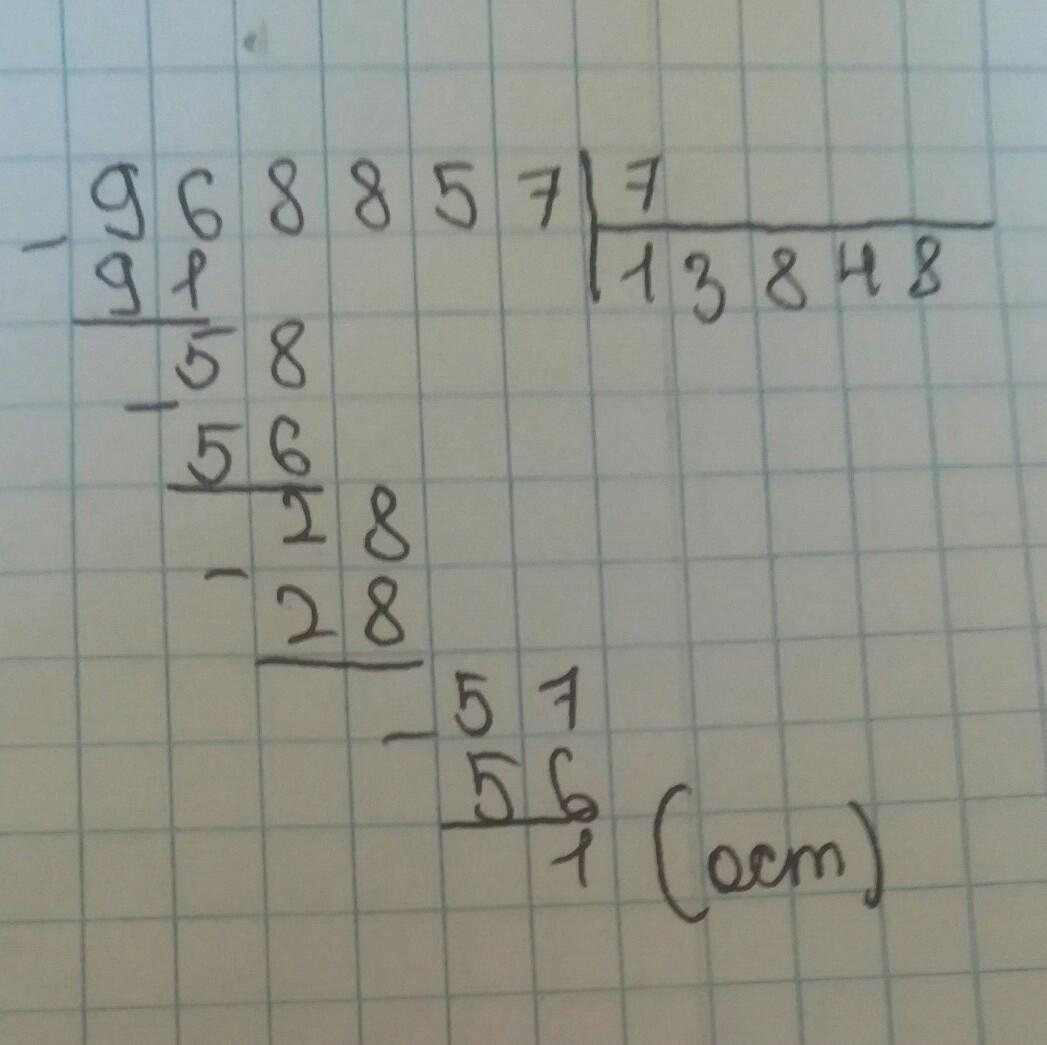 968857 | 7
- 91 13848
58
- 56
28
- 28
- 57
56
1 (ост)